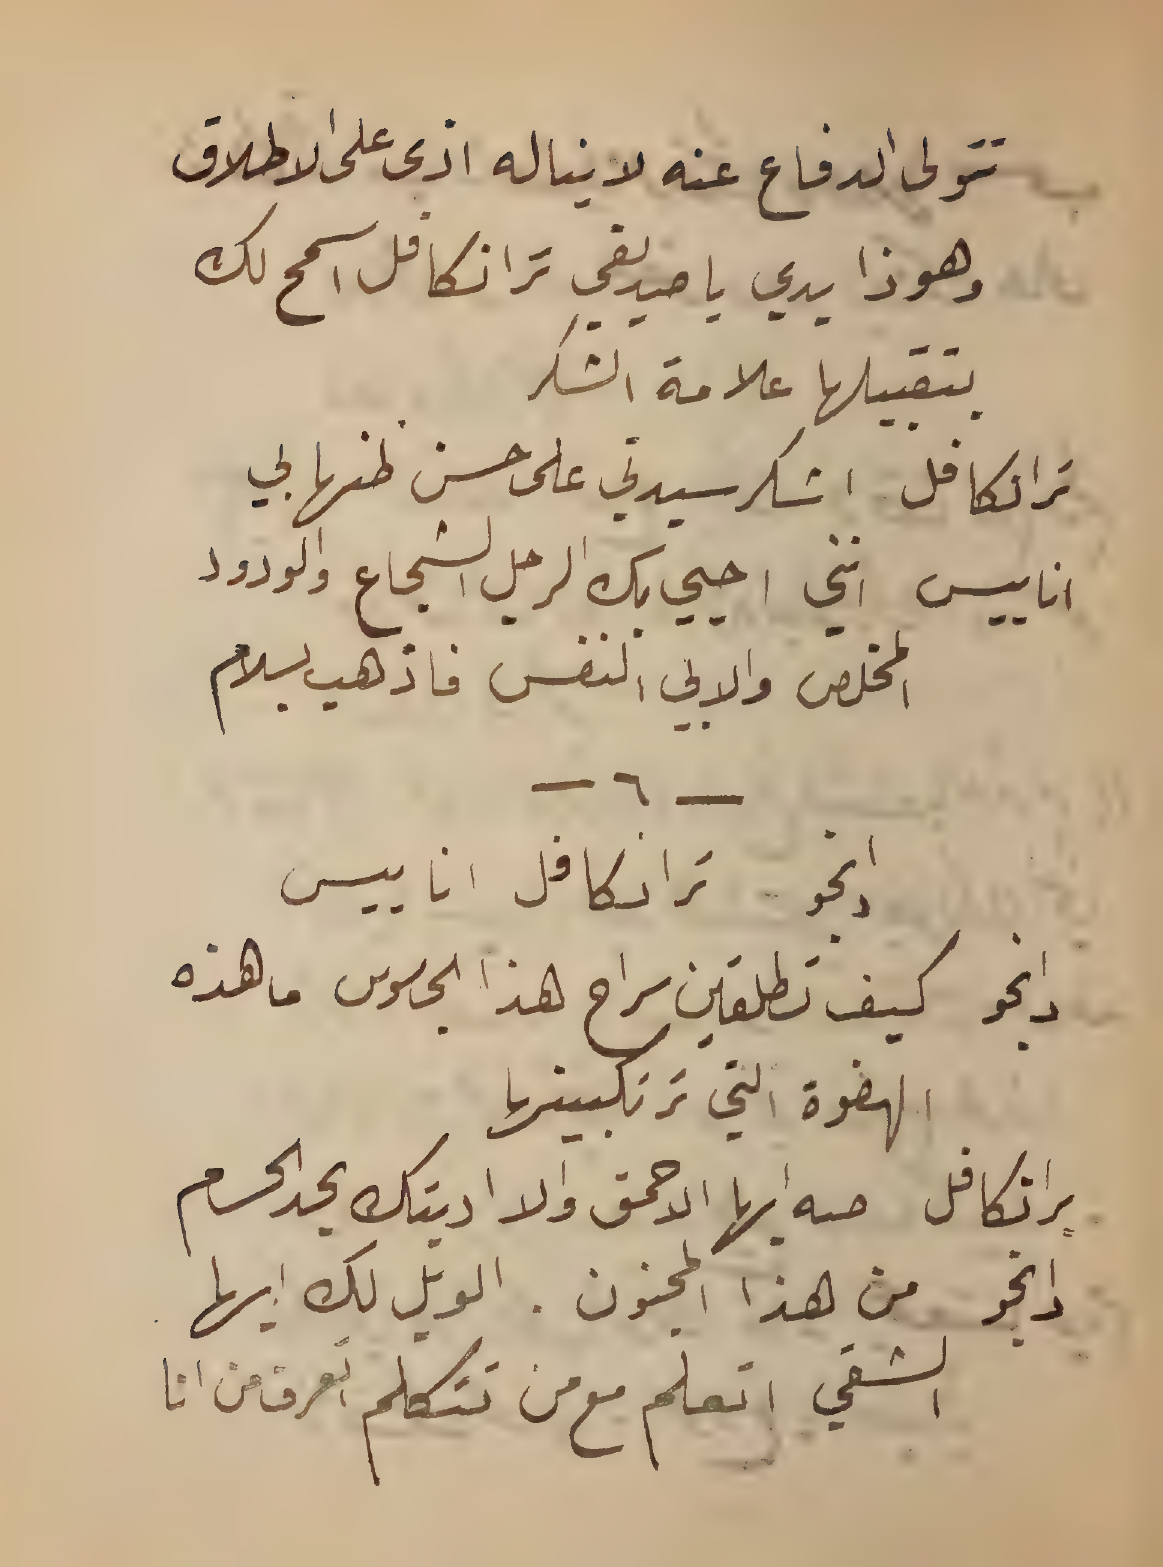 تتولى الدفاع عنه لا يناله اذى على الاطلاق
وهوذا يدي يا صديقي ترانكافل اسمح لك
بتقبيلها علامة الشكر
ترانكافل اشكر سيدتي على حسن ظنها بي
اناييس انني احيي بك الرجل الشجاع والودود
المخلص والابي النفس فاذهب بسلام
— ٦ —
دانجو ترانكافل اناييس
دانجو كيف تطلقين سراح هذا الجاسوس ما هذه
الهفوة التي ترتكبينها
ترانكافل صه ايها الاحمق والا ادبتك بحد الحسام
دانجو من هذا المجنون . الويل لك ايها
الشقي اتعلم مع من تتكلم اتعرف من انا